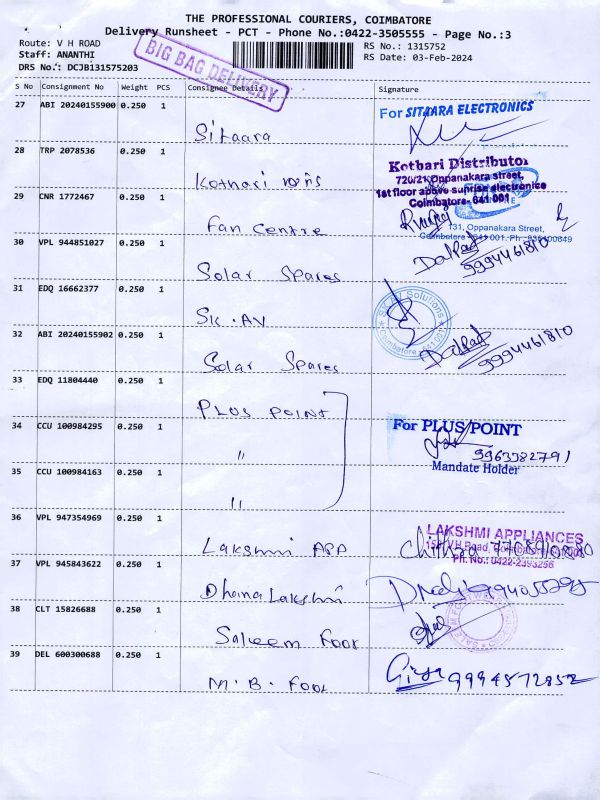 THE PROFESSIONAL COURIERS, COIMBATORE
Delivery Runsheet - PCT - Phone No.:0422-3505555 - Page No.:3
Route: V H ROAD
Staff: ANANTHI
DRS No.: DCJB131575203
BIG BAG DELIVERY
RS No.: 1315752
RS Date: 03-Feb-2024
S No Consignment No Weight PCS Consignee Details Signature
27 ABI 20240155900 0.250 1
Sitaara
For SITAARA ELECTRONICS
28 TRP 2078536 0.250 1
Kothari
Kothari Distributor
720/21 Oppanakara street,
1st floor above sunrise electronics
Coimbatore- 641 001
29 CNR 1772467 0.250 1
Fan Centre
131, Oppanakara Street,
Coimbatore 641 001. Ph
30 VPL 944851027 0.250 1
Solar Spares
9994461810
31 EDQ 16662377 0.250 1
SK.AV
SK AV Solutions
Coimbatore 641 001
32 ABI 20240155902 0.250 1
Solar Spares
9994461810
33 EDQ 11804440 0.250 1
PLUS POINT
34 CCU 100984295 0.250 1
"
For PLUS POINT
9963382791
Mandate Holder
35 CCU 100984163 0.250 1
"
36 VPL 947354969 0.250 1
Lakshmi APP
LAKSHMI APPLIANCES
V.H Road,
Ph. No.: 0422-2393256
Chithra
37 VPL 945843622 0.250 1
Dhana Lakshmi
38 CLT 15826688 0.250 1
Saleem Foot
39 DEL 600300688 0.250 1
M.B. Foot
9994572852